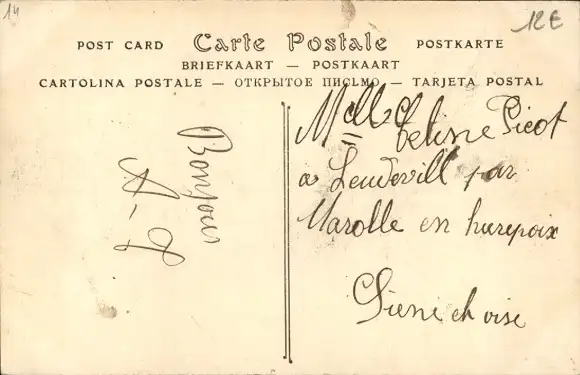 14
12 €
POST CARD Carte Postale POSTKARTE
BRIEFKAART — POSTKAART
CARTOLINA POSTALE — ОТКРЫТОЕ ПИСЬМО — TARJETA POSTAL
Bonjour
Mdlle Celine Picot
a Leudevill par
Marolle en hurepoix
Siene et oise